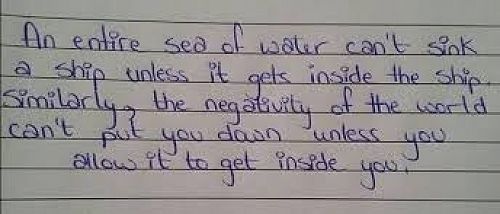 An entire sea of water can't sink
a ship unless it gets inside the ship.
Similarly, the negativity of the world
can't put you down unless you
allow it to get inside you.